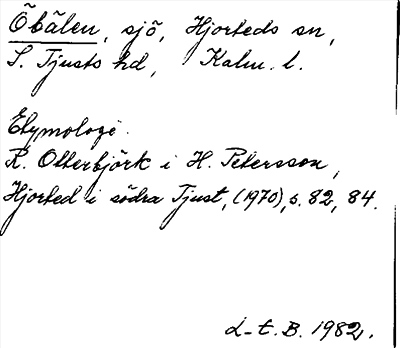 Öbälen, sjö, Hjorteds sn,
S. Tjusts hd, Kalm. l.
Etymologi.
R. Otterbjörk i H. Petersson,
Hjorted i södra Tjust, (1970), s. 82, 84.
L-t. B. 1982.